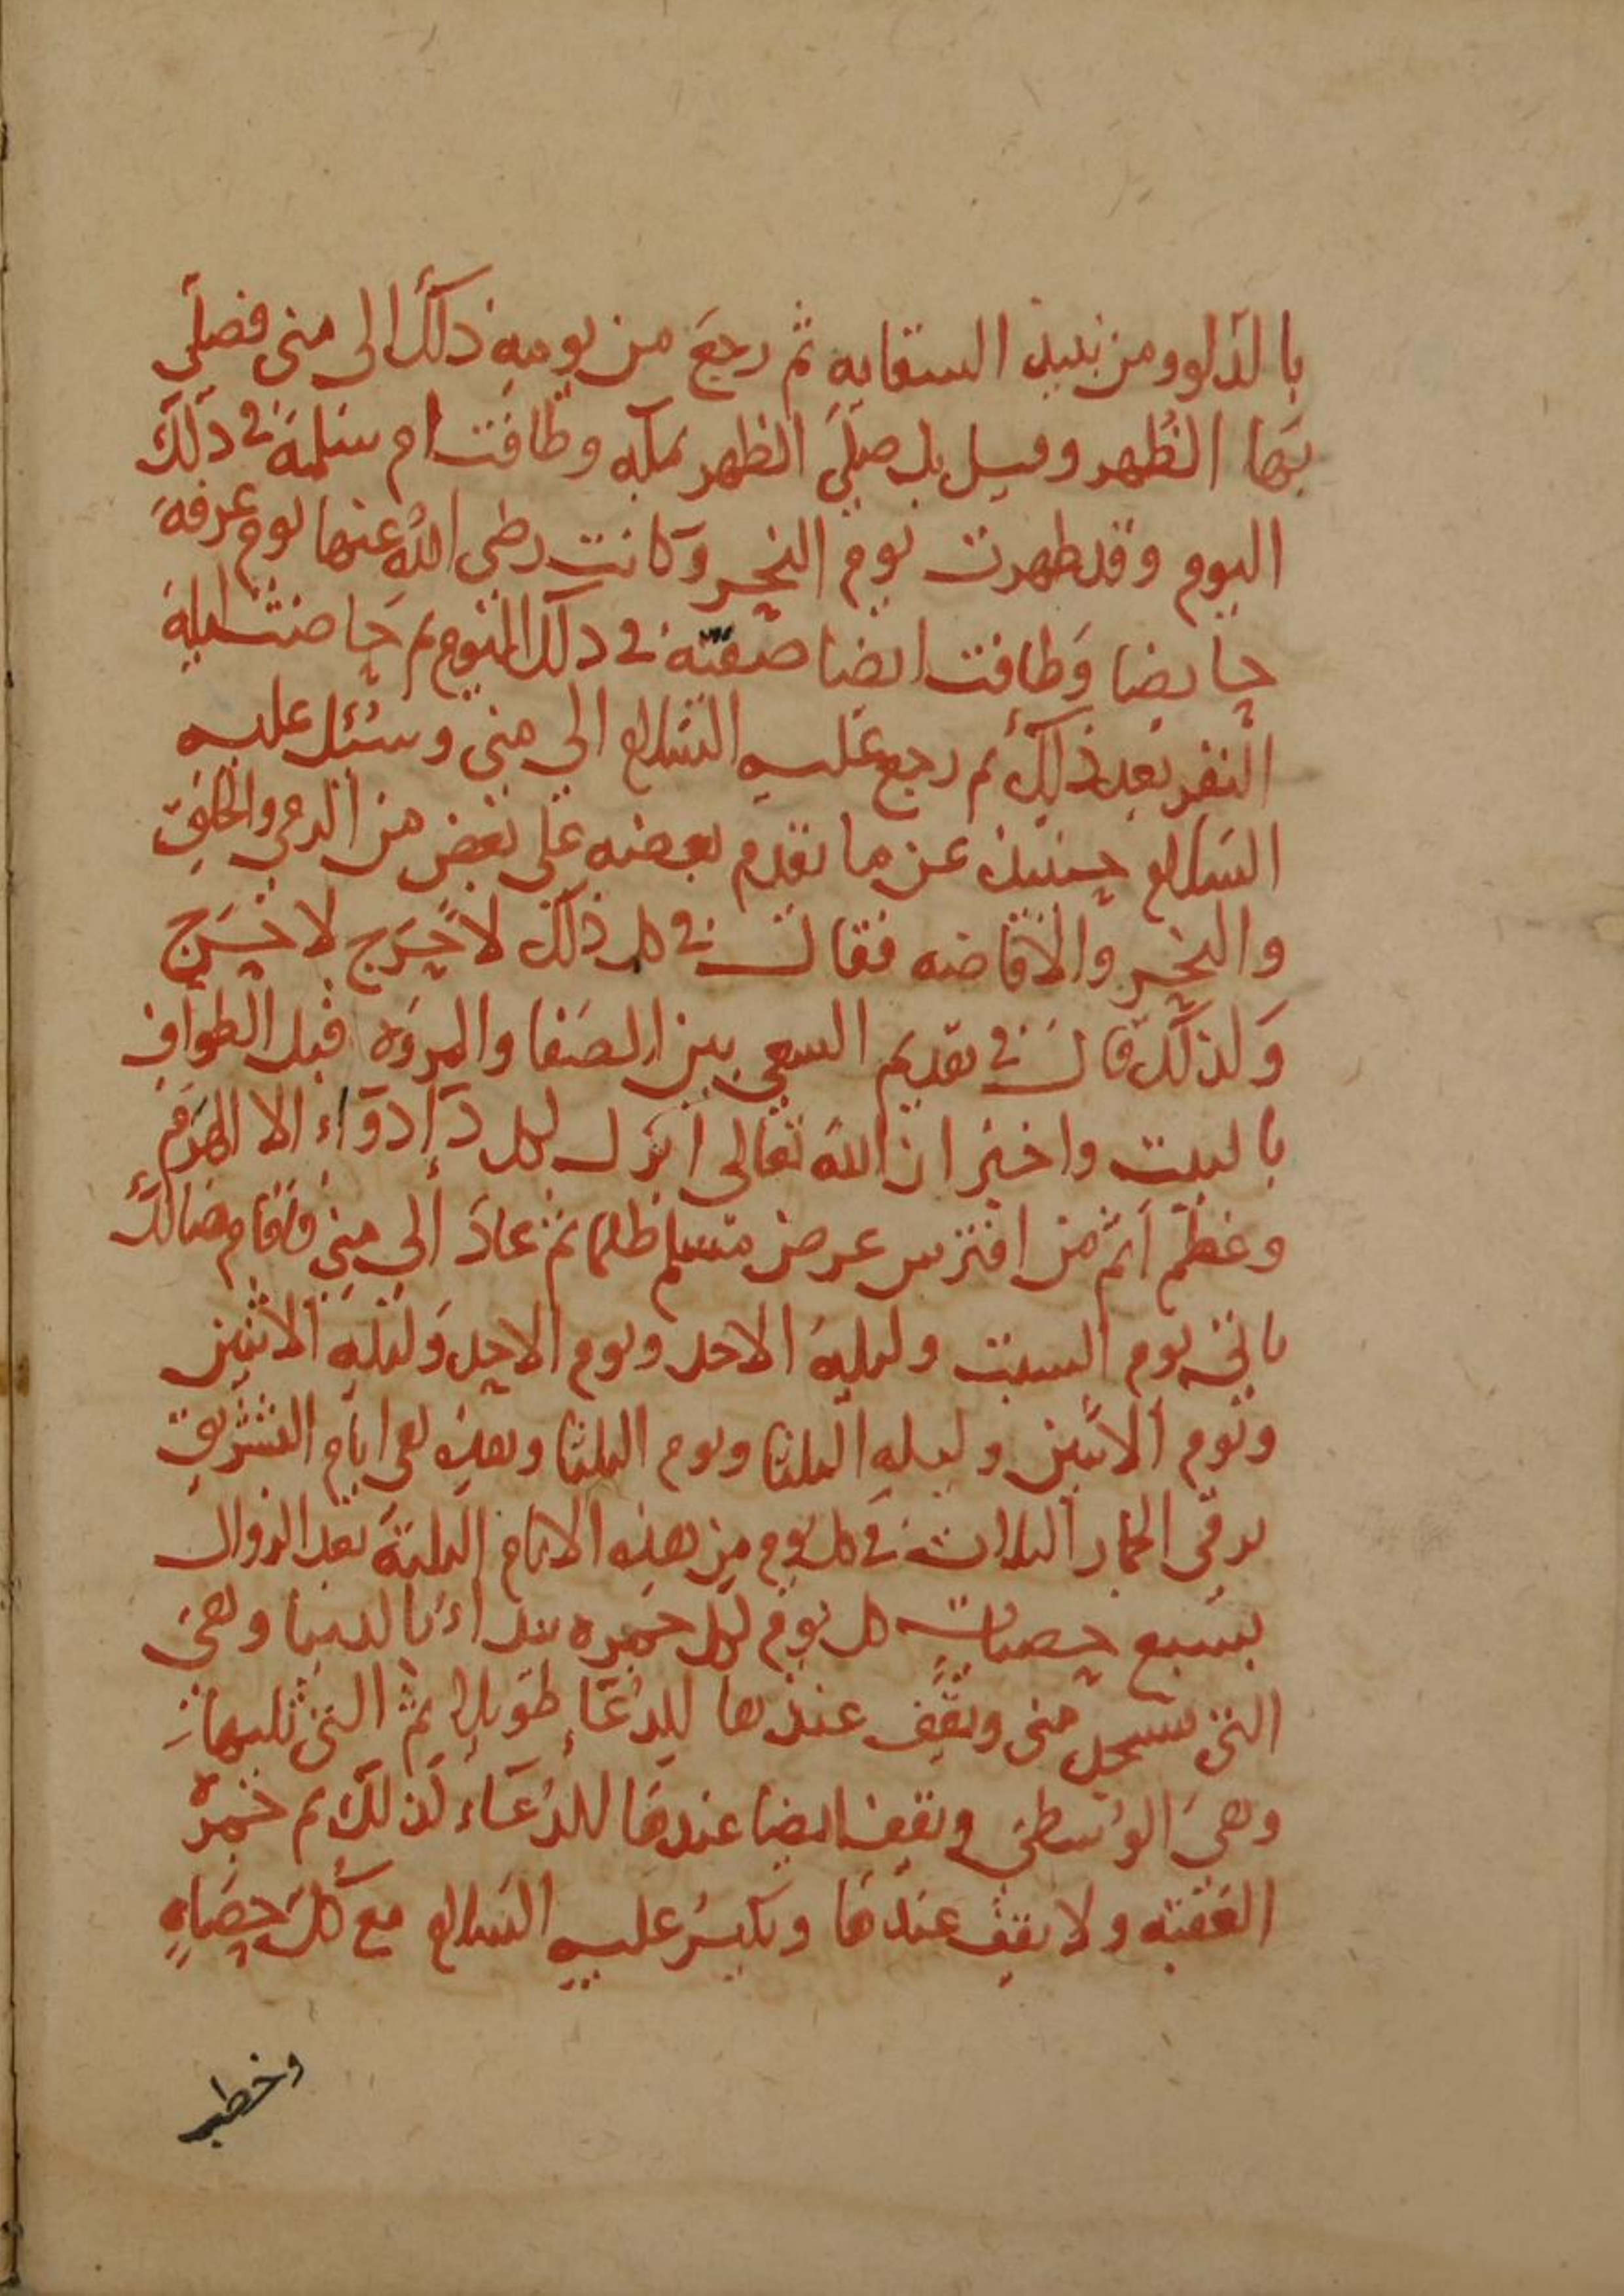 بالدلو ومن نبيذ السقايه ثم رجع من يومه ذلك الى منى فصلى
بها الظهر وقيل بل صلى الظهر بمكه وطافت ام سلمة في ذلك
اليوم وقد طهرت يوم النحر وكانت رضى الله عنها يوم عرفة
حايضا وطافت ايضا صفية في ذلك اليوم ثم حاضت ليلة
النفر بعد ذلك ثم رجع عليه السلام الى منى وسئل عليه
السلام حينيذ عن ما تقدم بعضه على بعض من الرمي والحلق
والنحر والافاضه فقال في كل ذلك لا حرج لا حرج
وكذلك قال في تقديم السعي بين الصفا والمروه قبل الطواف
بالبيت واخبر ان الله تعالى انزل لكل داء دواء الا الهرم
وعظم اثم من افترس عرض مسلم ظلما ثم عاد الى منى فاقام هنالك
باقي يوم السبت وليلة الاحد ويوم الاحد وليله الاثنين
ويوم الاثنين وليله الثلثا ويوم الثلثا وهذه هي ايام التشريق
يرمي الجمار الثلاث في كل يوم من هذه الايام الثلثة بعد الزوال
بسبع حصيات كل يوم لكل جمره يبداء بالدنيا وهي
التي مسجد منى ويقف عندها للدعاء طويلا ثم التي تليها
وهي الوسطى ويقف ايضا عندها للدعاء كذلك ثم جمرة
العقبه ولا يقف عندها ويكبر عليه السلام مع كل حصاه
وخطب